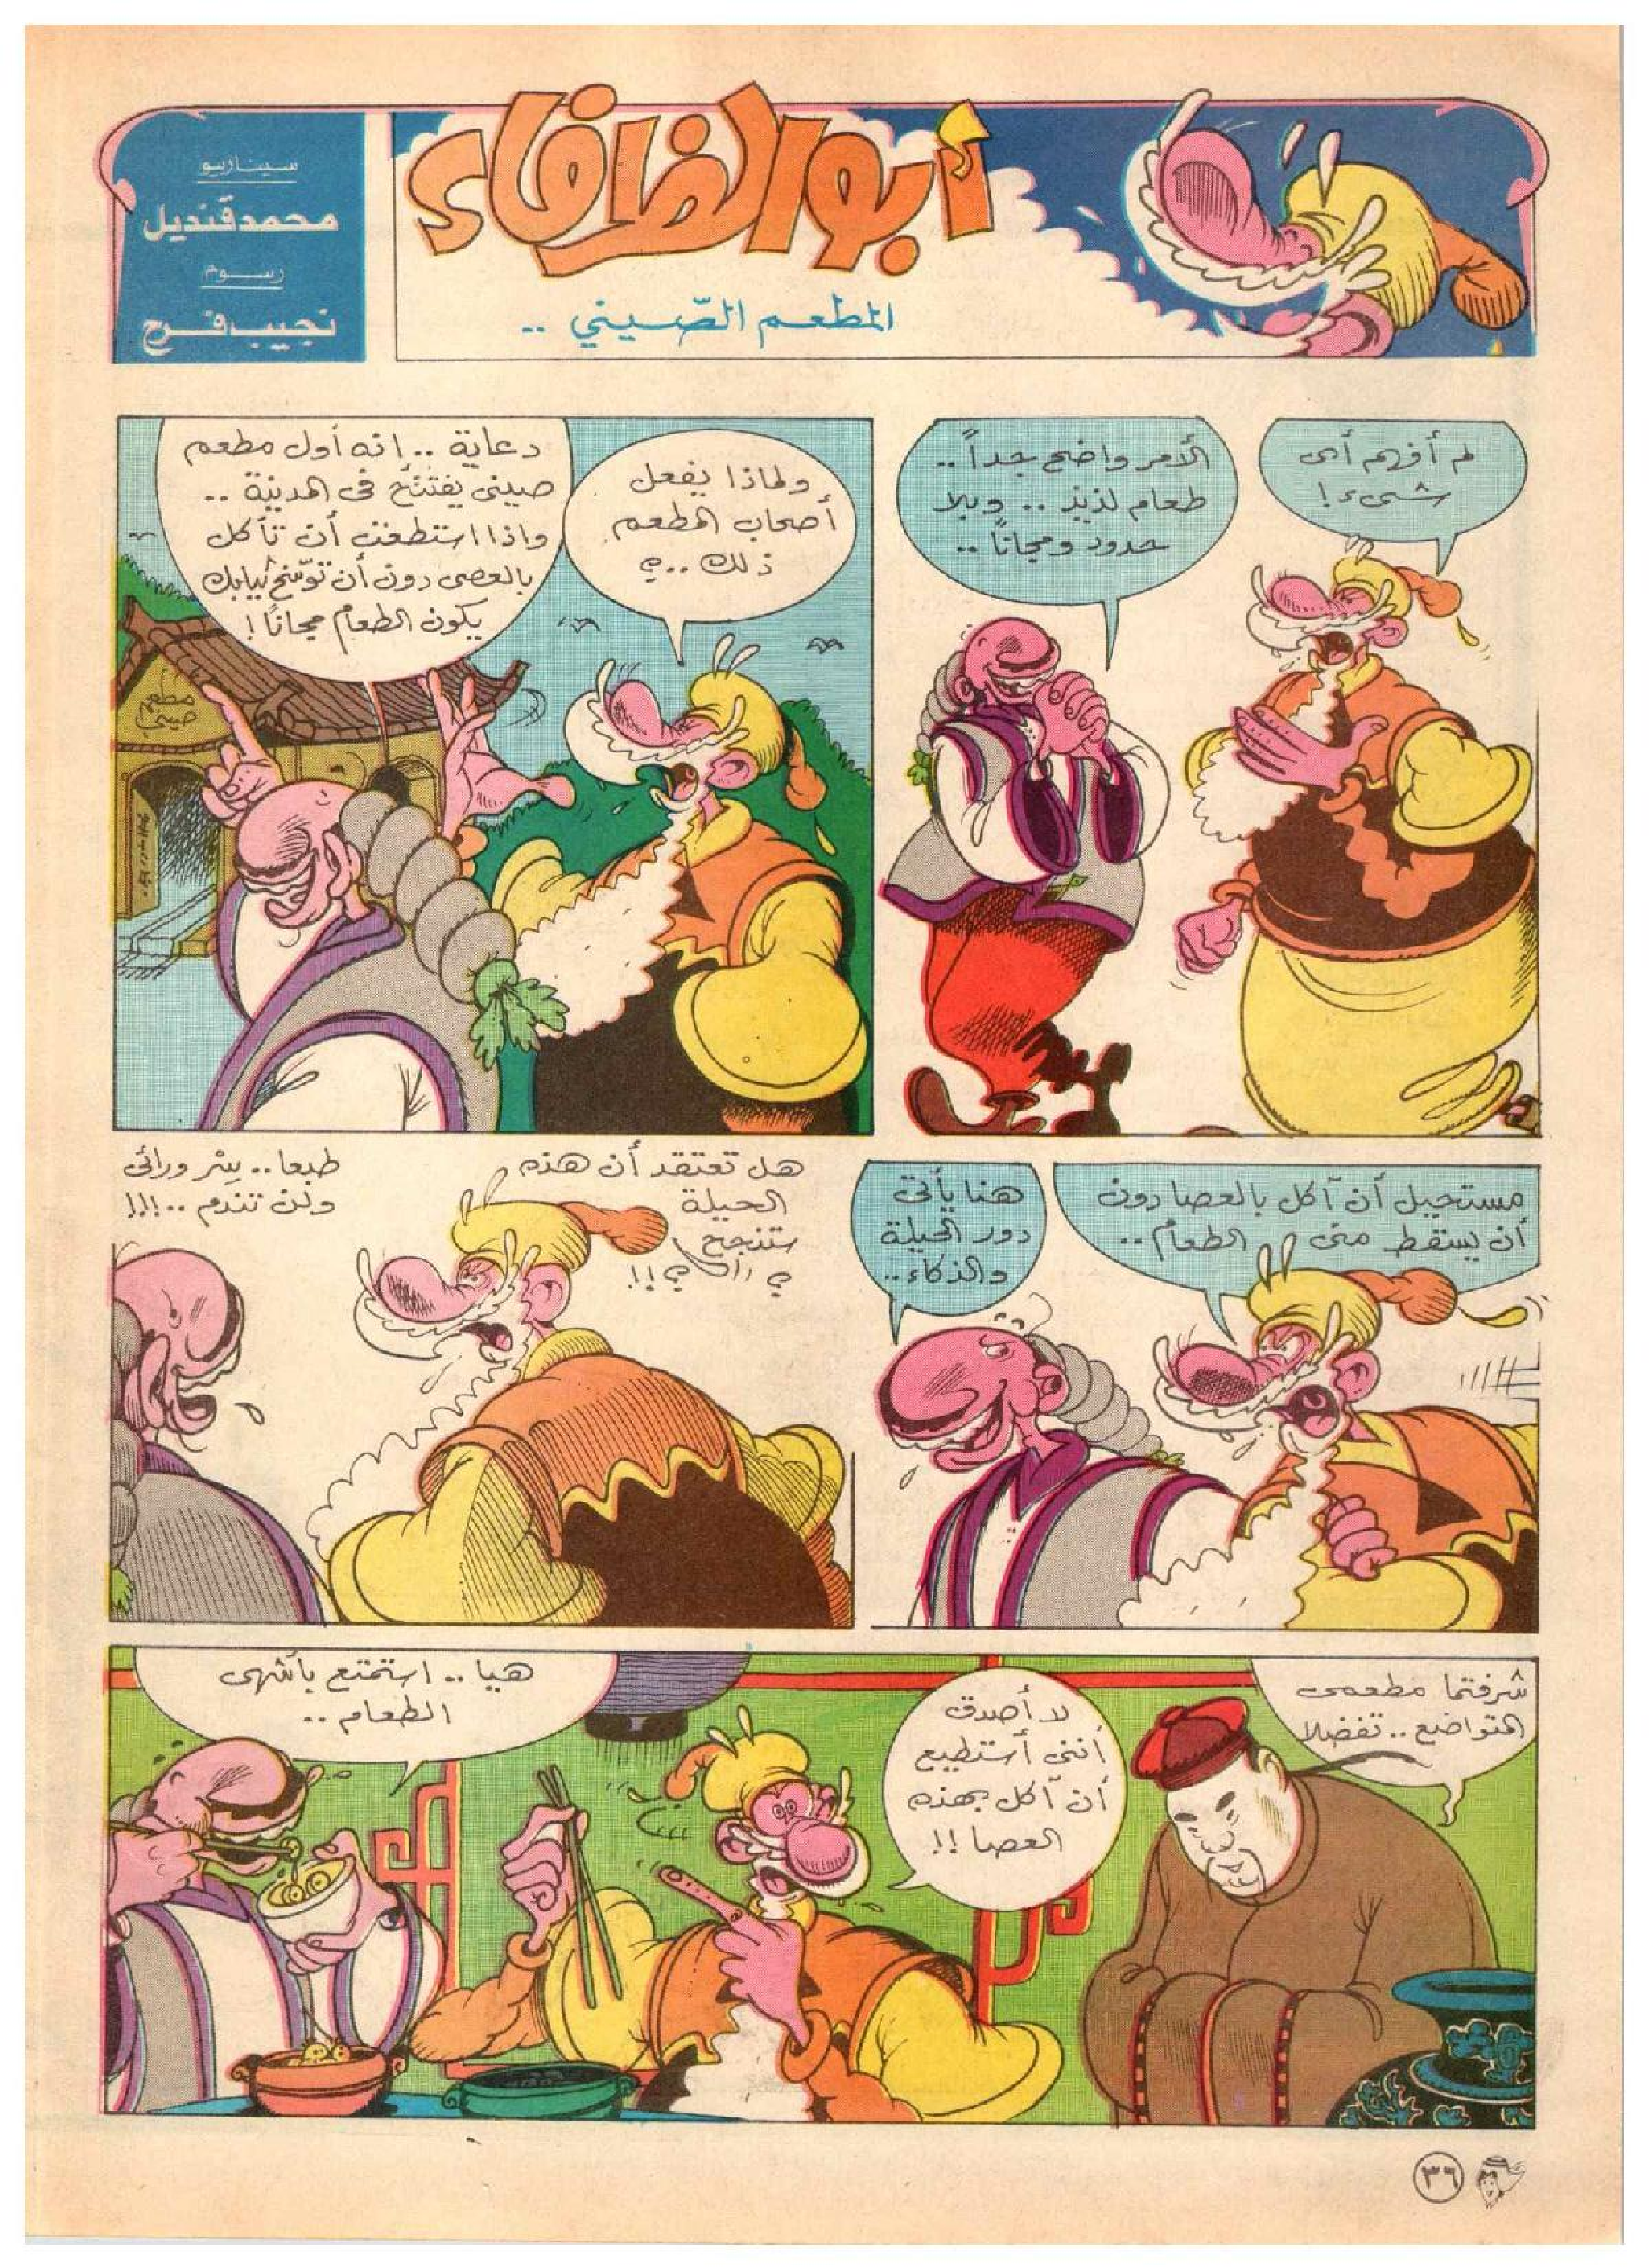 أبو الظرفاء
المطعم الصّيني ..
سيناريو
محمد قنديل
رسوم
نجيب فرج
لم أفهم أى
شىء!
الأمر واضح جداً ..
طعام لذيذ .. وبلا
حدود ومجاناً ..
ولماذا يفعل
أصحاب المطعم
ذلك ..؟
دعاية .. انه أول مطعم
صينى يفتتح فى المدينة ..
واذا استطعت أن تأكل
بالعصى دون أن توسّخ ثيابك
يكون الطعام مجاناً !
مطعم
صينى
مستحيل أن آكل بالعصا دون
أن يسقط منى الطعام ..
هنا يأتى
دور الحيلة
والذكاء ..
هل تعتقد أن هذه
الحيلة
ستنجح
؟!!
طبعا .. سِر ورائى
ولن تندم ..!!!
شرفتما مطعمى
المتواضع .. تفضلا
لا أصدق
أننى أستطيع
أن آكل بهذه
العصا !!
هيا .. استمتع بأشهى
الطعام ..
٣٦